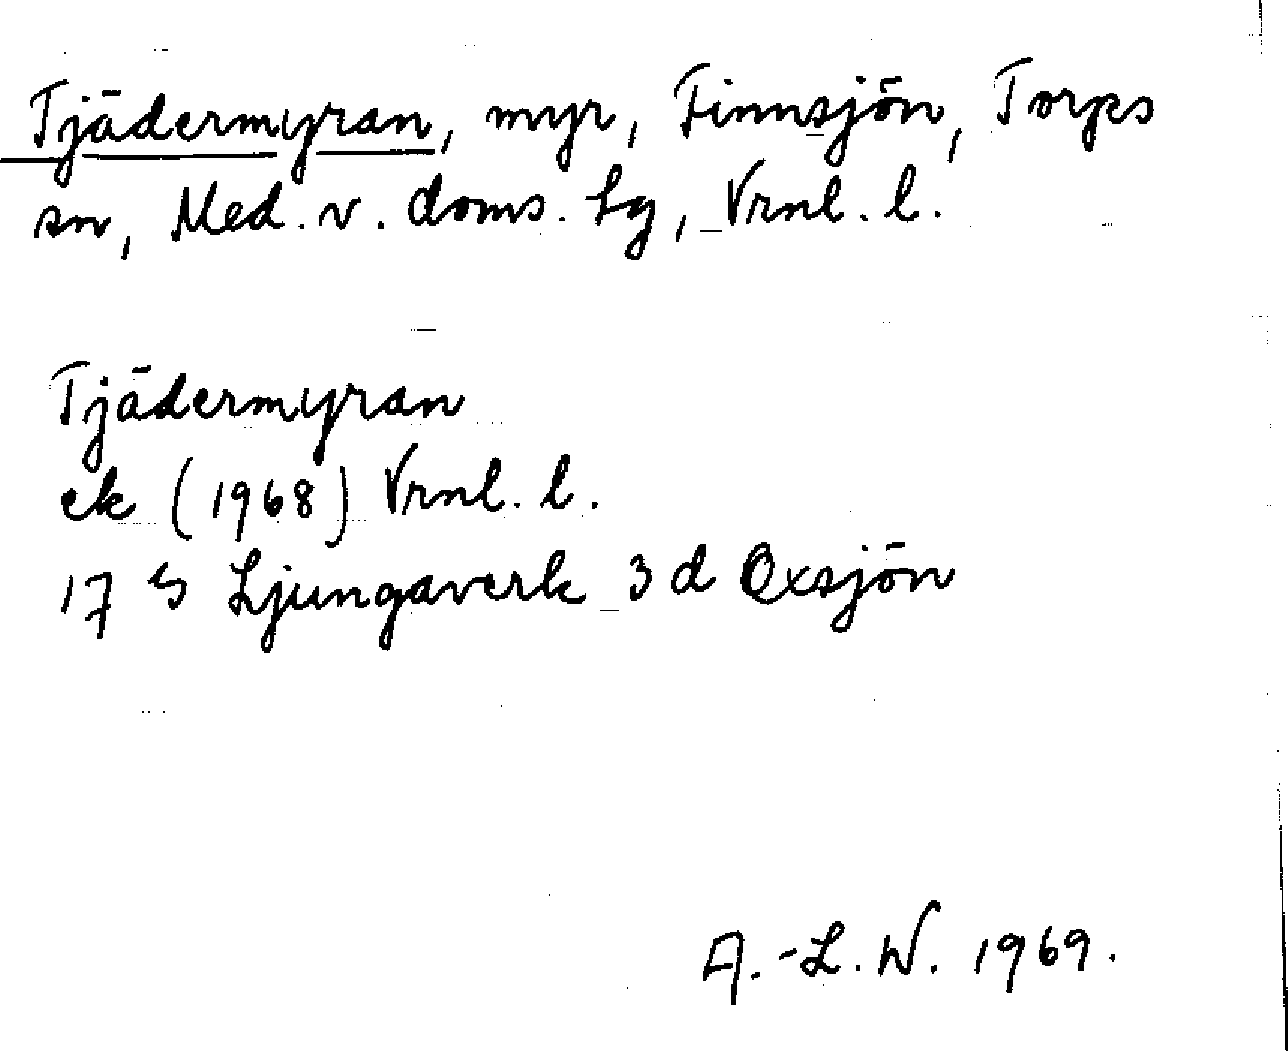 Tjädermyran, myr, Finnsjön, Torps
sn, Med. v. doms. lg, Vrnl. l.
Tjädermyran
ek (1968) Vrnl. l.
17 G Ljungaverk 3 d Oxsjön
A.-L. W. 1969.